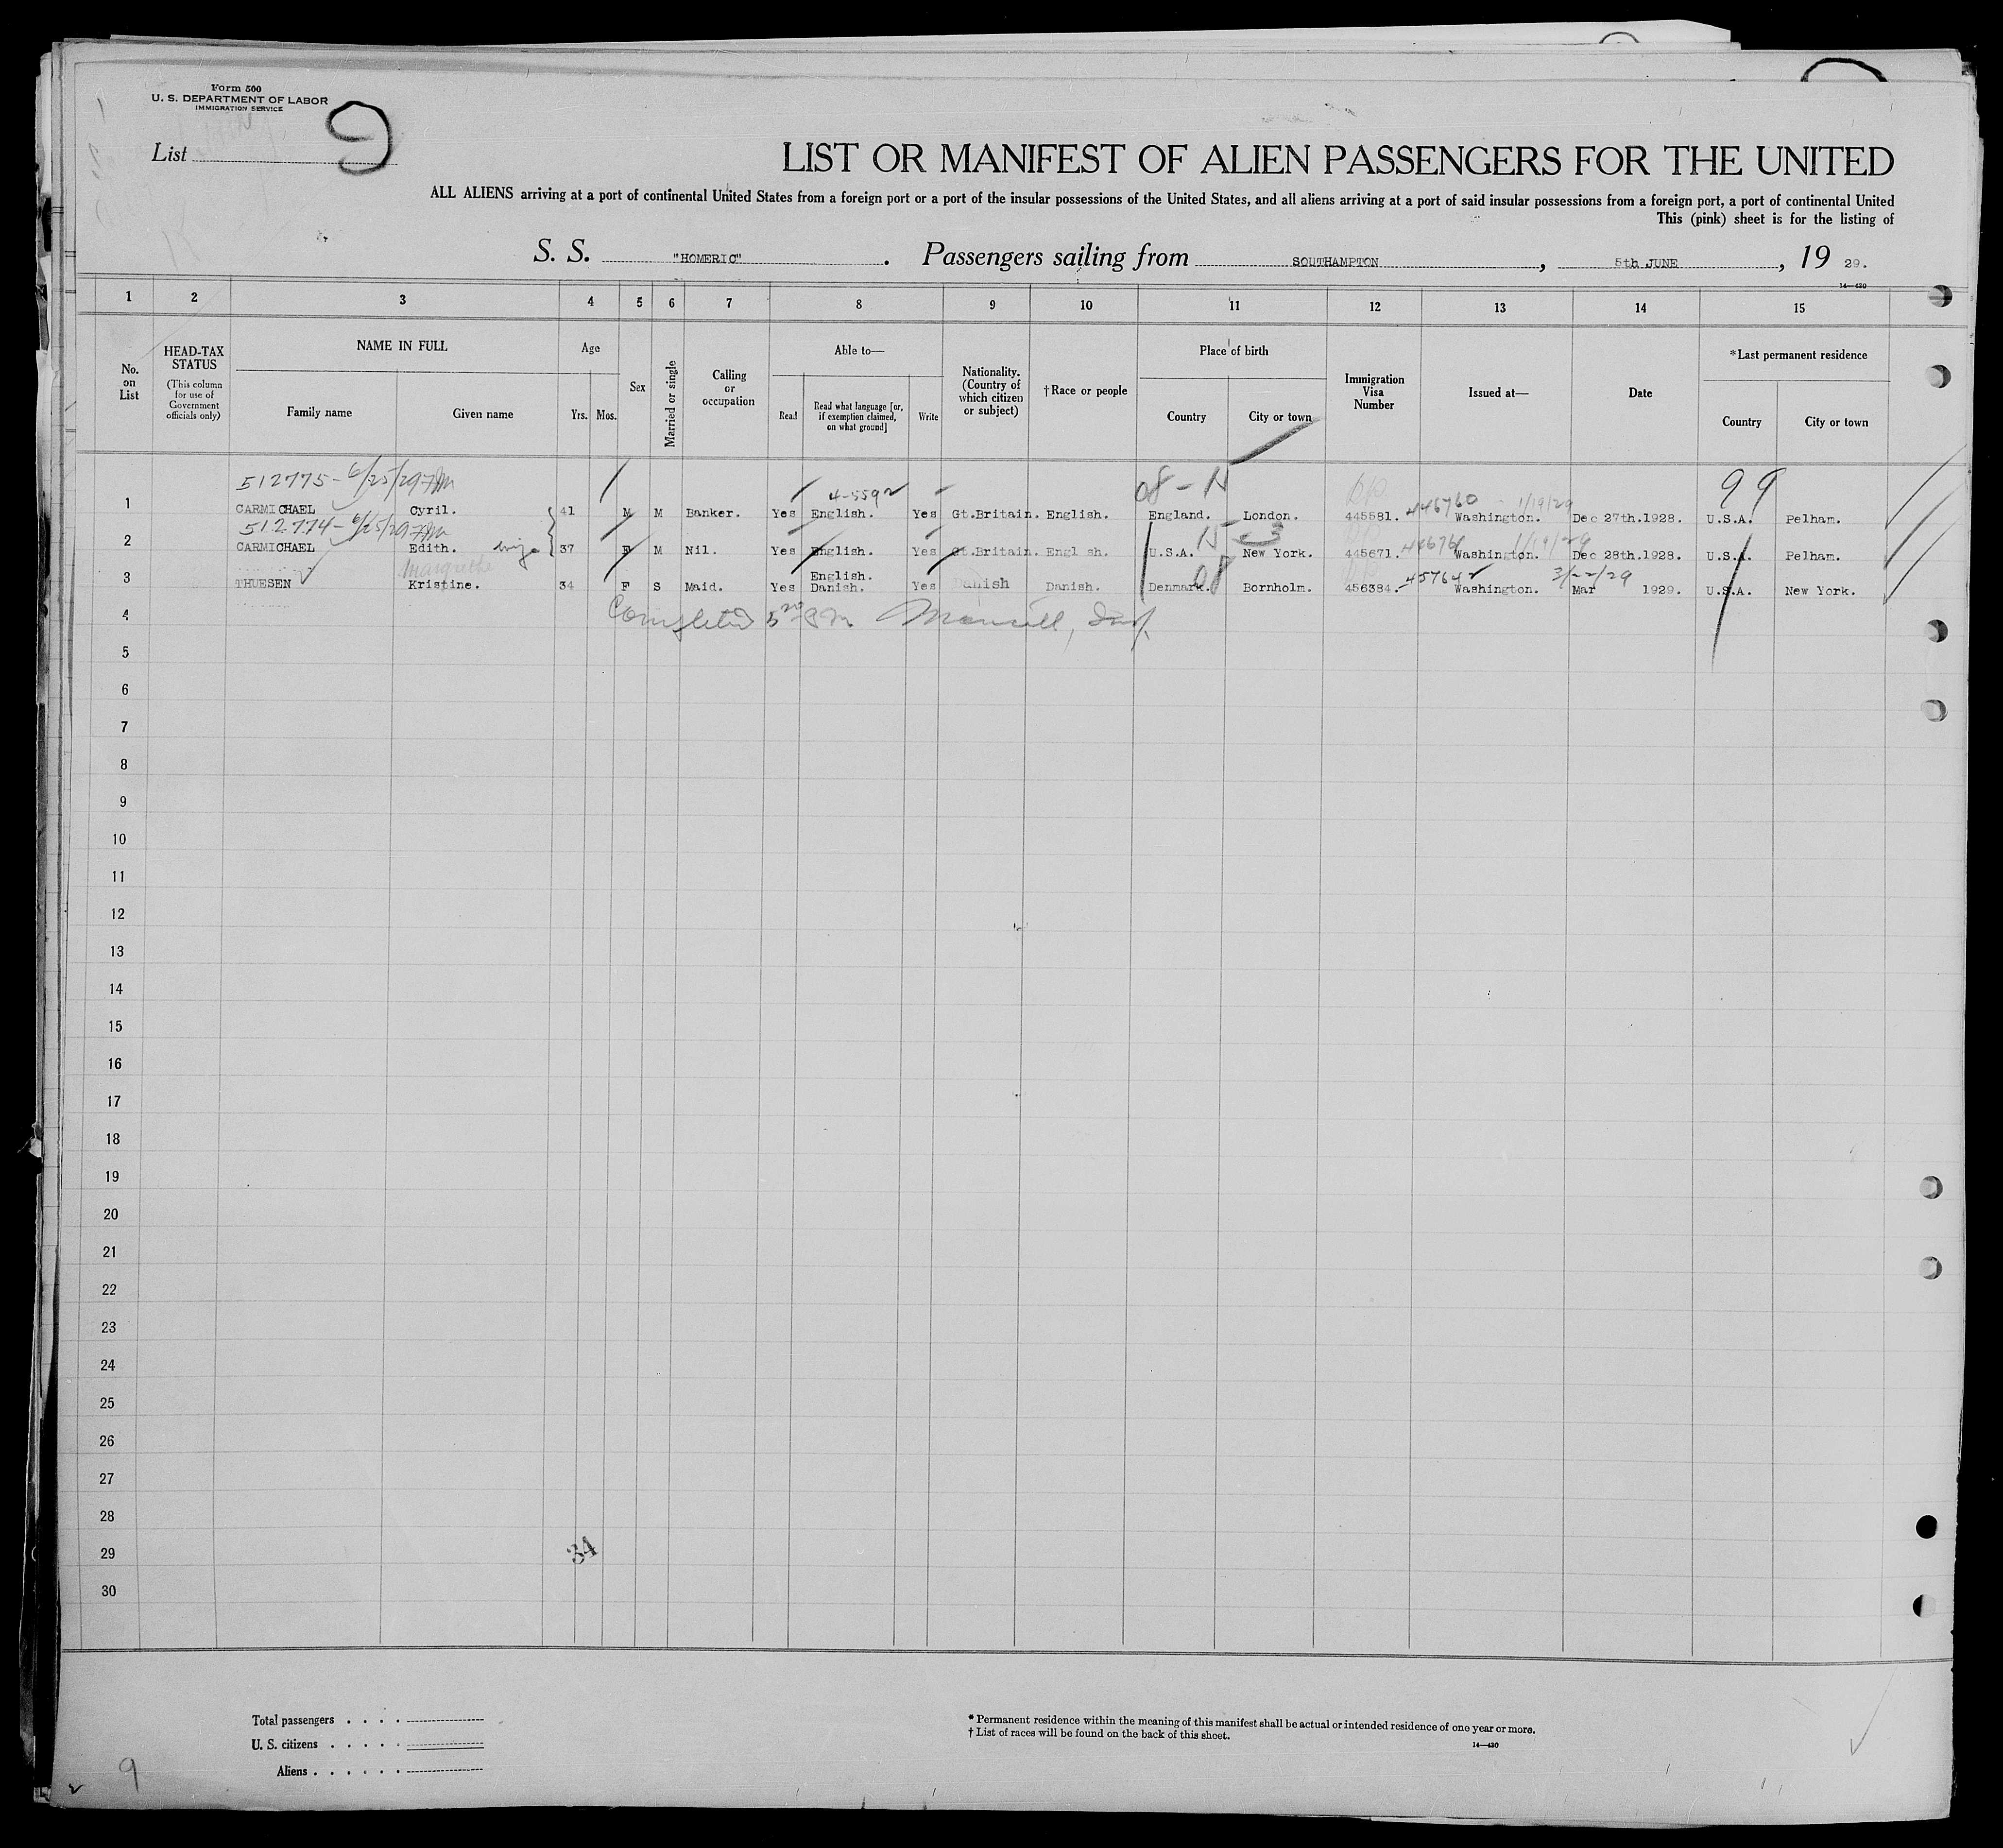 Form 500
U. S. DEPARTMENT OF LABOR
IMMIGRATION SERVICE
List 9
LIST OR MANIFEST OF ALIEN PASSENGERS FOR THE UNITED
ALL ALIENS arriving at a port of continental United States from a foreign port or a port of the insular possessions of the United States, and all aliens arriving at a port of said insular possessions from a foreign port, a port of continental United
This (pink) sheet is for the listing of
S. S. "HOMERIC" . Passengers sailing from SOUTHAMPTON , 5th JUNE , 19 29.
14—430
1 2 3 4 5 6 7 8 9 10 11 12 13 14 15
No. on List
HEAD-TAX STATUS (This column for use of Government officials only)
NAME IN FULL
Family name Given name
Age
Yrs. Mos.
Sex
Married or single
Calling or occupation
Able to—
Read Read what language [or, if exemption claimed, on what ground] Write
Nationality. (Country of which citizen or subject)
†Race or people
Place of birth
Country City or town
Immigration Visa Number
Issued at—
Date
*Last permanent residence
Country City or town
512775 - 6/25/29 4-559 08 - 446760 1/19/29 99
1 CARMICHAEL Cyril. 41 M M Banker. Yes English. Yes Gt.Britain. English. England. London. 445581. Washington. Dec 27th.1928. U.S.A. Pelham.
512774 - 6/25/29 1/19/29
2 CARMICHAEL Edith. 37 F M Nil. Yes English. Yes Gt.Britain. Engl sh. U.S.A. New York. 445671. Washington. Dec 28th.1928. U.S.A. Pelham.
Margrethe English. 08 457642 3/22/29
3 THUESEN Kristine. 34 F S Maid. Yes Danish. Yes Danish Danish. Denmark. Bornholm. 456384. Washington. Mar 1929. U.S.A. New York.
4 Completed
5
6
7
8
9
10
11
12
13
14
15
16
17
18
19
20
21
22
23
24
25
26
27
28
29 34
30
Total passengers . . . .
U. S. citizens . . . . .
Aliens . . . . . .
* Permanent residence within the meaning of this manifest shall be actual or intended residence of one year or more.
† List of races will be found on the back of this sheet.
14—430
9